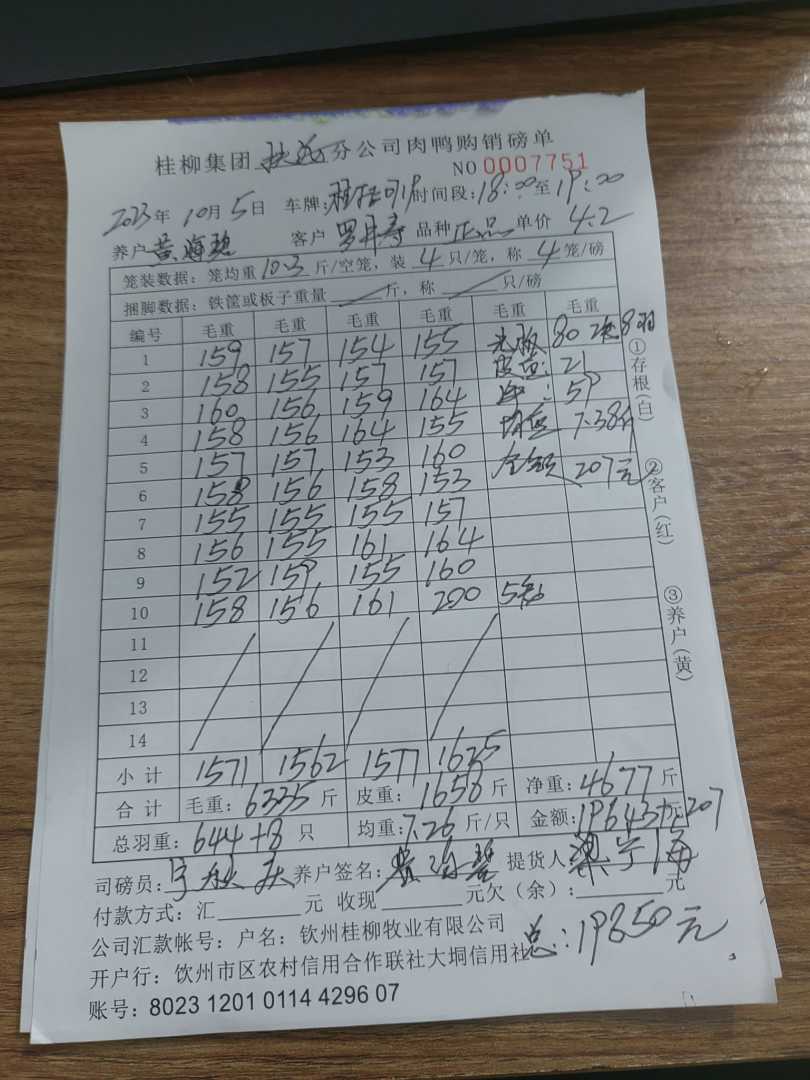 桂柳集团 分公司肉鸭购销磅单
NO 0007751
2023年 10月 5日 车牌: 时间段: 18:00至 19:00
养户 黄海 客户 罗 品种 正品 单价 4.2
笼装数据: 笼均重 10.3 斤/空笼, 装 4 只/笼, 称 4 笼/磅
捆脚数据: 铁筐或板子重量 / 斤, 称 / 只/磅
编号 毛重 毛重 毛重 毛重 毛重 毛重
1 159 157 154 155 80 8羽
2 158 155 157 157 皮重: 21
3 160 156 159 164 净: 59
4 158 156 164 155 均重 7.38斤
5 157 157 153 160 金额 207元
6 158 156 158 153
7 155 155 155 157
8 156 155 161 164
9 152 159 155 160
10 158 156 161 200 5
11
12
13
14
小计 1571 1562 1577 1625
合计 毛重: 6335 斤 皮重: 1658 斤 净重: 4677 斤
总羽重: 644+8 只 均重: 7.26 斤/只 金额: 19643元+207
司磅员: 养户签名: 黄海 提货人: 梁
付款方式: 汇 元 收现 元欠(余): 元
公司汇款帐号: 户名: 钦州桂柳牧业有限公司
开户行: 钦州市区农村信用合作联社大垌信用社 总: 19850元
账号: 8023 1201 0114 4296 07
①存根(白)
②客户(红)
③养户(黄)